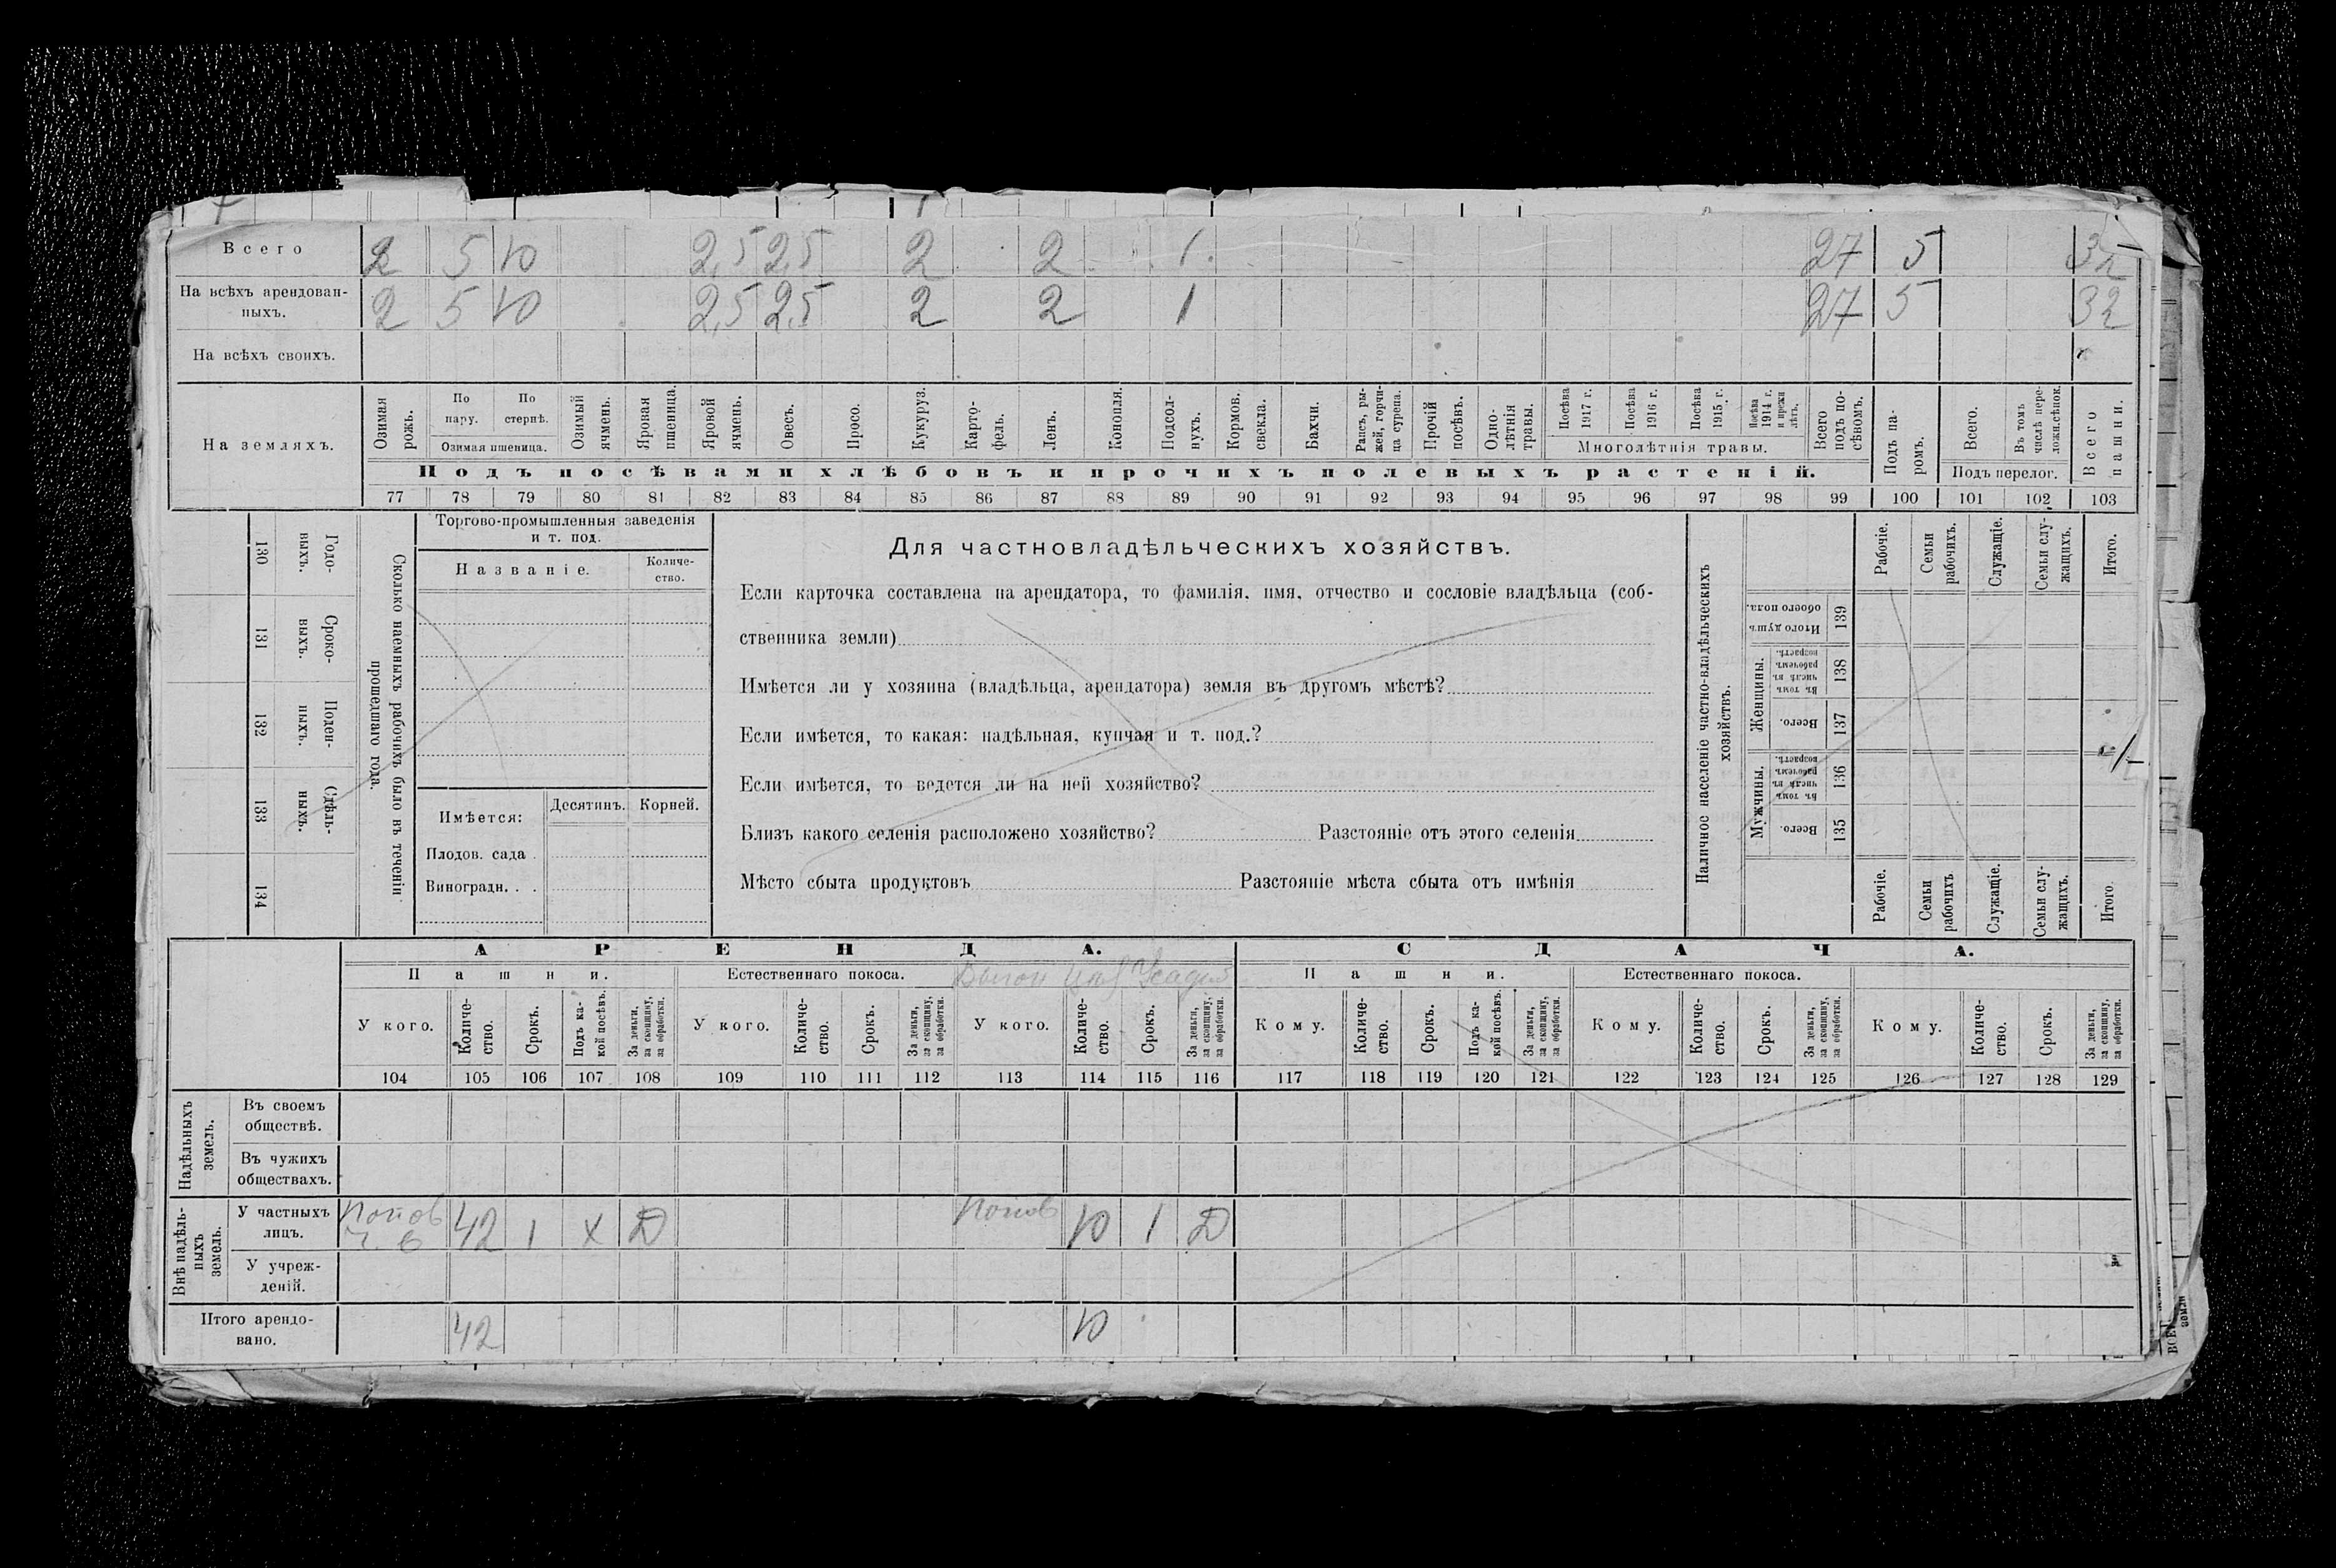 Всего 2 5 10 2,5 2,5 2 2 1 27 5 32
На всѣхъ арендован-
ныхъ. 2 5 10 2,5 2,5 2 2 1 27 5 32
На всѣхъ своихъ.
На земляхъ.
Озимая рожь.
По пару.
По стернѣ.
Озимая пшеница.
Озимый ячмень.
Яровая пшеница.
Яровой ячмень.
Овесъ.
Просо.
Кукуруз.
Карто-фель.
Ленъ.
Конопля.
Подсол-нухъ.
Кормов. свекла.
Бахчи.
Рапсъ, ры-жей, горчи-ца сурепа.
Прочій посѣвъ.
Одно-лѣтнія травы.
Посѣва 1917 г.
Посѣва 1916 г.
Посѣва 1915 г.
Посѣва 1914 г. и прежн лѣтъ.
Многолѣтнія травы.
Всего подъ по-сѣвомъ.
Подъ па-ромъ.
Всего.
Въ томъ числѣ пере-ложн.сѣнок.
Подъ перелог.
Всего пашни.
Подъ посѣвами хлѣбовъ и прочихъ полевыхъ растеній.
77 78 79 80 81 82 83 84 85 86 87 88 89 90 91 92 93 94 95 96 97 98 99 100 101 102 103
130 Годо-выхъ.
131 Сроко-выхъ.
132 Поден-ныхъ.
133 Сдѣль-ныхъ.
134
Сколько наемныхъ рабочихъ было въ теченіи
прошедшаго года.
Торгово-промышленныя заведенія
и т. под.
Названіе.
Количе-ство.
Имѣется: Десятинъ. Корней.
Плодов. сада .
Виноградн. . .
Для частновладѣльческихъ хозяйствъ.
Если карточка составлена на арендатора, то фамилія, имя, отчество и сословіе владѣльца (соб-
ственника земли)
Имѣется ли у хозяина (владѣльца, арендатора) земля въ другомъ мѣстѣ?
Если имѣется, то какая: надѣльная, купчая и т. под.?
Если имѣется, то ведется ли на ней хозяйство?
Близъ какого селенія расположено хозяйство? Разстояніе отъ этого селенія
Мѣсто сбыта продуктовъ Разстояніе мѣста сбыта отъ имѣнія
Наличное населеніе частно-владѣльческихъ
хозяйствъ.
Рабочіе.
Семьи рабочихъ.
Служащіе.
Семьи слу-жащихъ.
Итого.
Итого душъ обоего пола. 139
Женщины.
Въ томъ числѣ въ рабочемъ возрастѣ. 138
Всего. 137
Мужчины.
Въ томъ числѣ въ рабочемъ возрастѣ. 136
Всего. 135
Рабочіе.
Семьи рабочихъ
Служащіе.
Семьи слу-жащихъ.
Итого.
АРЕНДА. СДАЧА.
Пашни. Естественнаго покоса. Пашни. Естественнаго покоса.
У кого. Количе-ство. Срокъ. Подъ ка-кой посѣвъ. За деньги, за скопщину, за обработки.
У кого. Количе-ство. Срокъ. За деньги, за скопщину, за обработки.
У кого. Количе-ство. Срокъ. За деньги, за скопщину, за обработки.
Кому. Количе-ство. Срокъ. Подъ ка-кой посѣвъ. За деньги, за скопщину, за обработки.
Кому. Количе-ство. Срокъ. За деньги, за скопщину, за обработки.
Кому. Количе-ство. Срокъ. За деньги, за скопщину, за обработки.
104 105 106 107 108 109 110 111 112 113 114 115 116 117 118 119 120 121 122 123 124 125 126 127 128 129
Надѣльныхъ земель.
Въ своемъ
обществѣ.
Въ чужихъ
обществахъ.
Внѣ надѣль-ныхъ земель.
У частныхъ
лицъ. Попов 42 1 х Д Попов 10 1 Д
У учреж-
деній.
Итого арендо-
вано. 42 10